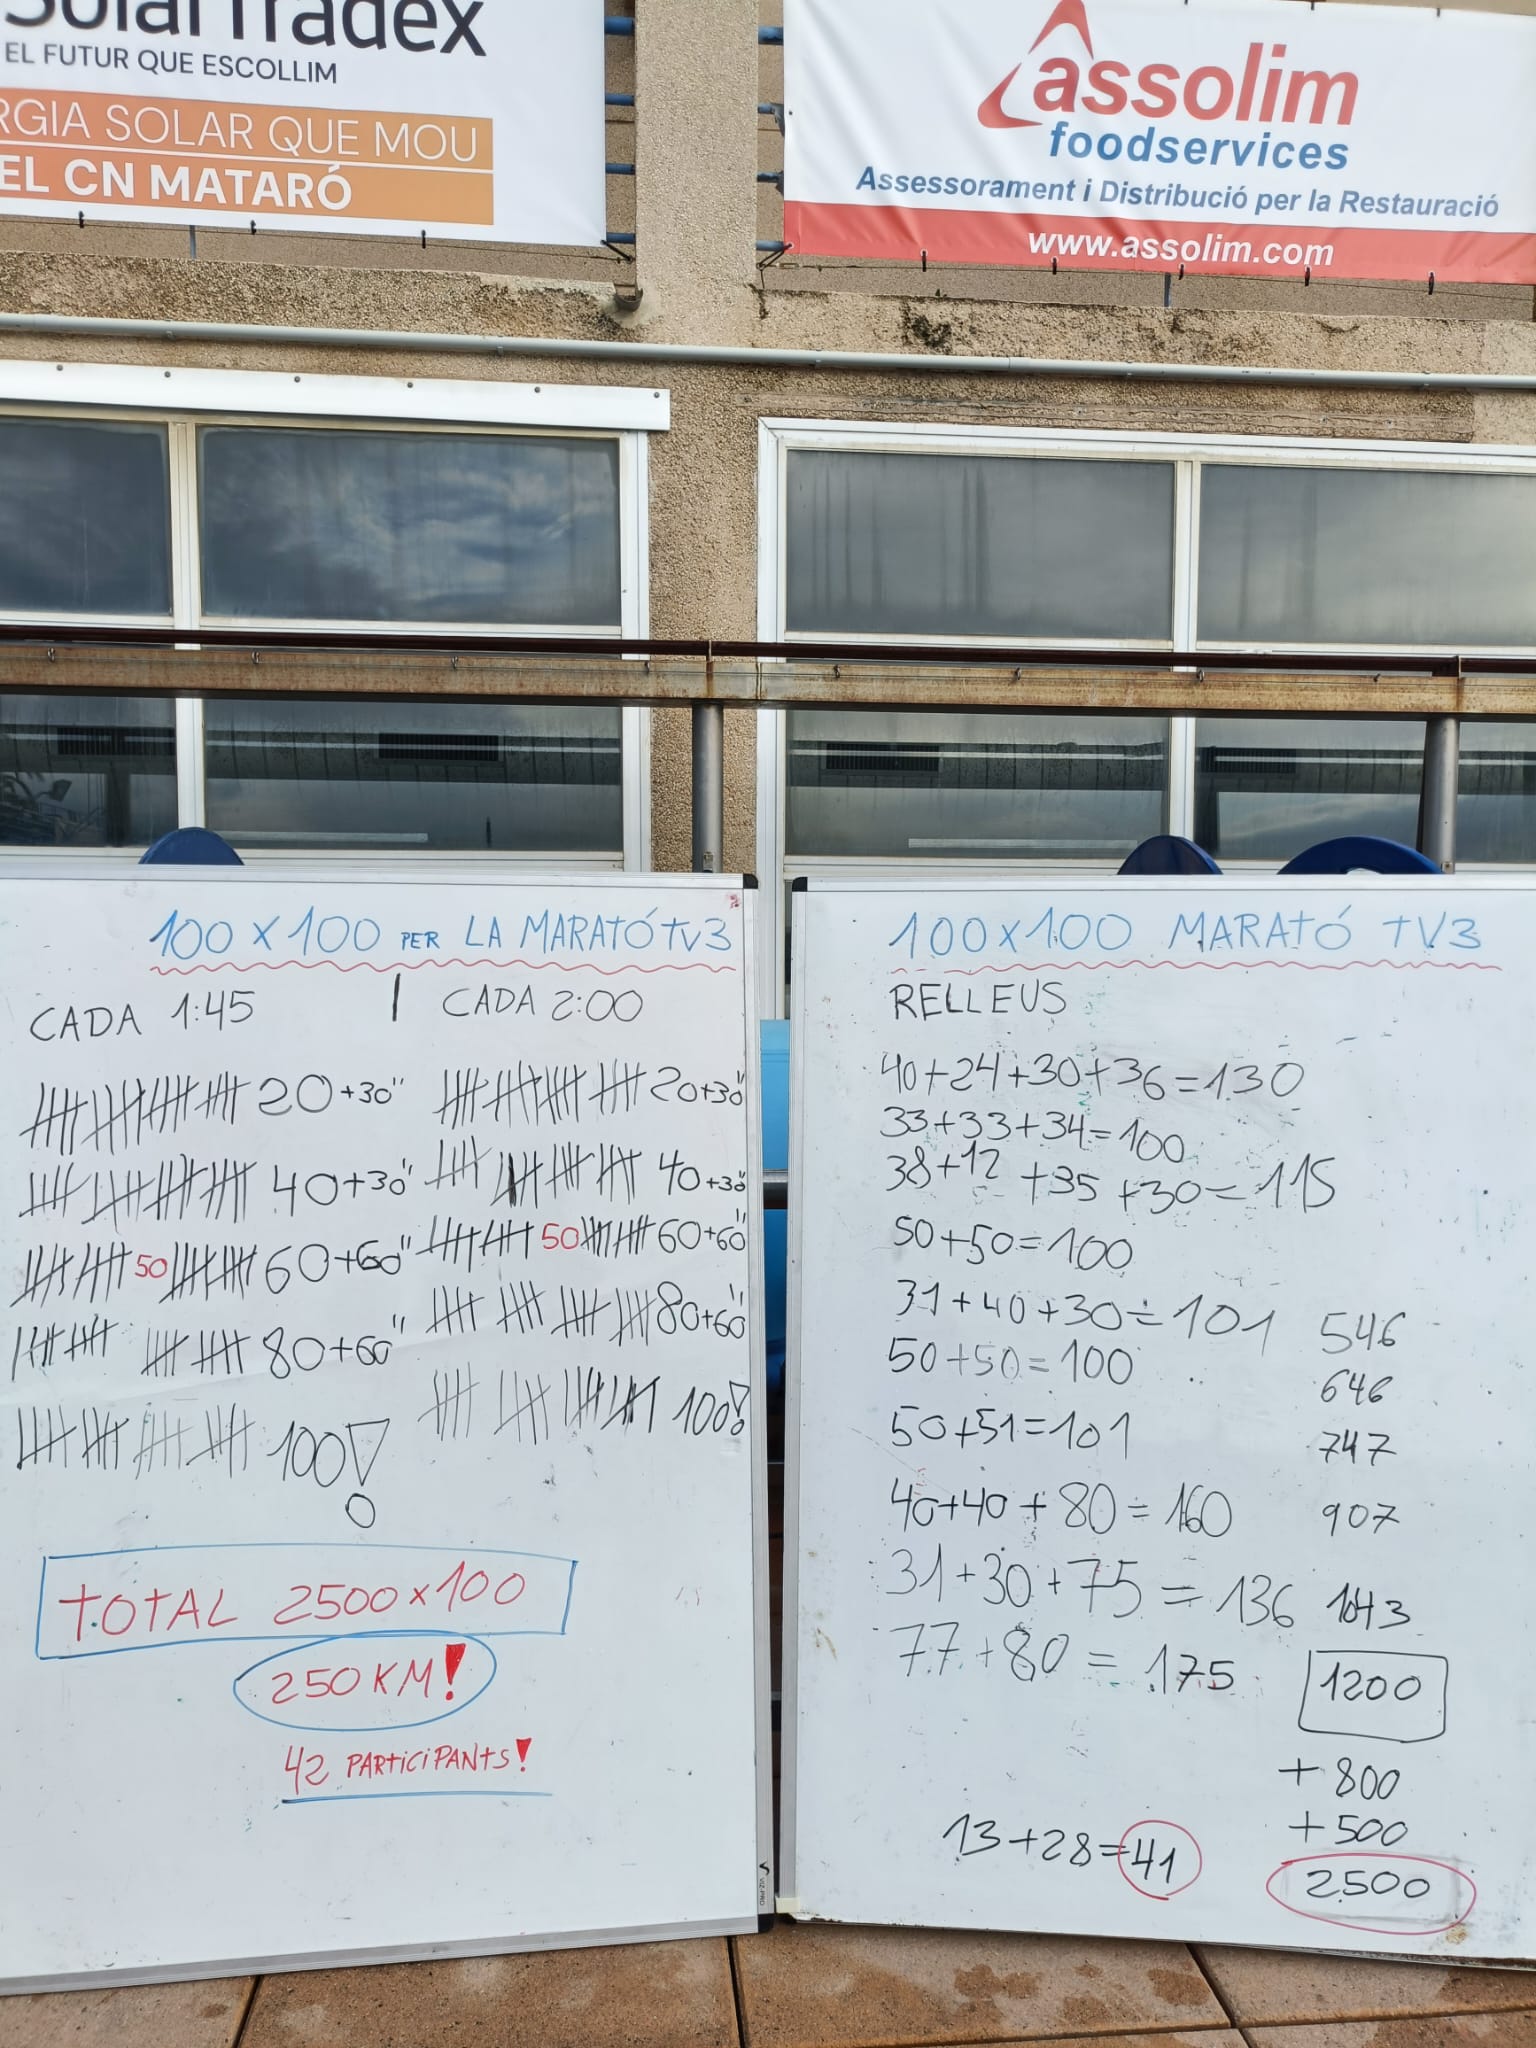 SolarTradex
EL FUTUR QUE ESCOLLIM
RGIA SOLAR QUE MOU
EL CN MATARÓ
assolim
foodservices
Assessorament i Distribució per la Restauració
www.assolim.com
100 x 100 PER LA MARATÓ TV3
CADA 1:45 | CADA 2:00
20 +30" 20+30"
40+30" 40+30"
50 60+60" 50 60+60"
80+60" 80+60"
100! 100!
TOTAL 2500x100
250 KM!
42 PARTICIPANTS!
100x100 MARATÓ TV3
RELLEUS
40+24+30+36=130
33+33+34=100
38+12+35+30=115
50+50=100
31+40+30=101 546
50+50=100 646
50+51=101 747
40+40+80=160 907
31+30+75=136 1043
77+80=175 1200
+800
+500
13+28=41 2500
VIZ-PRO